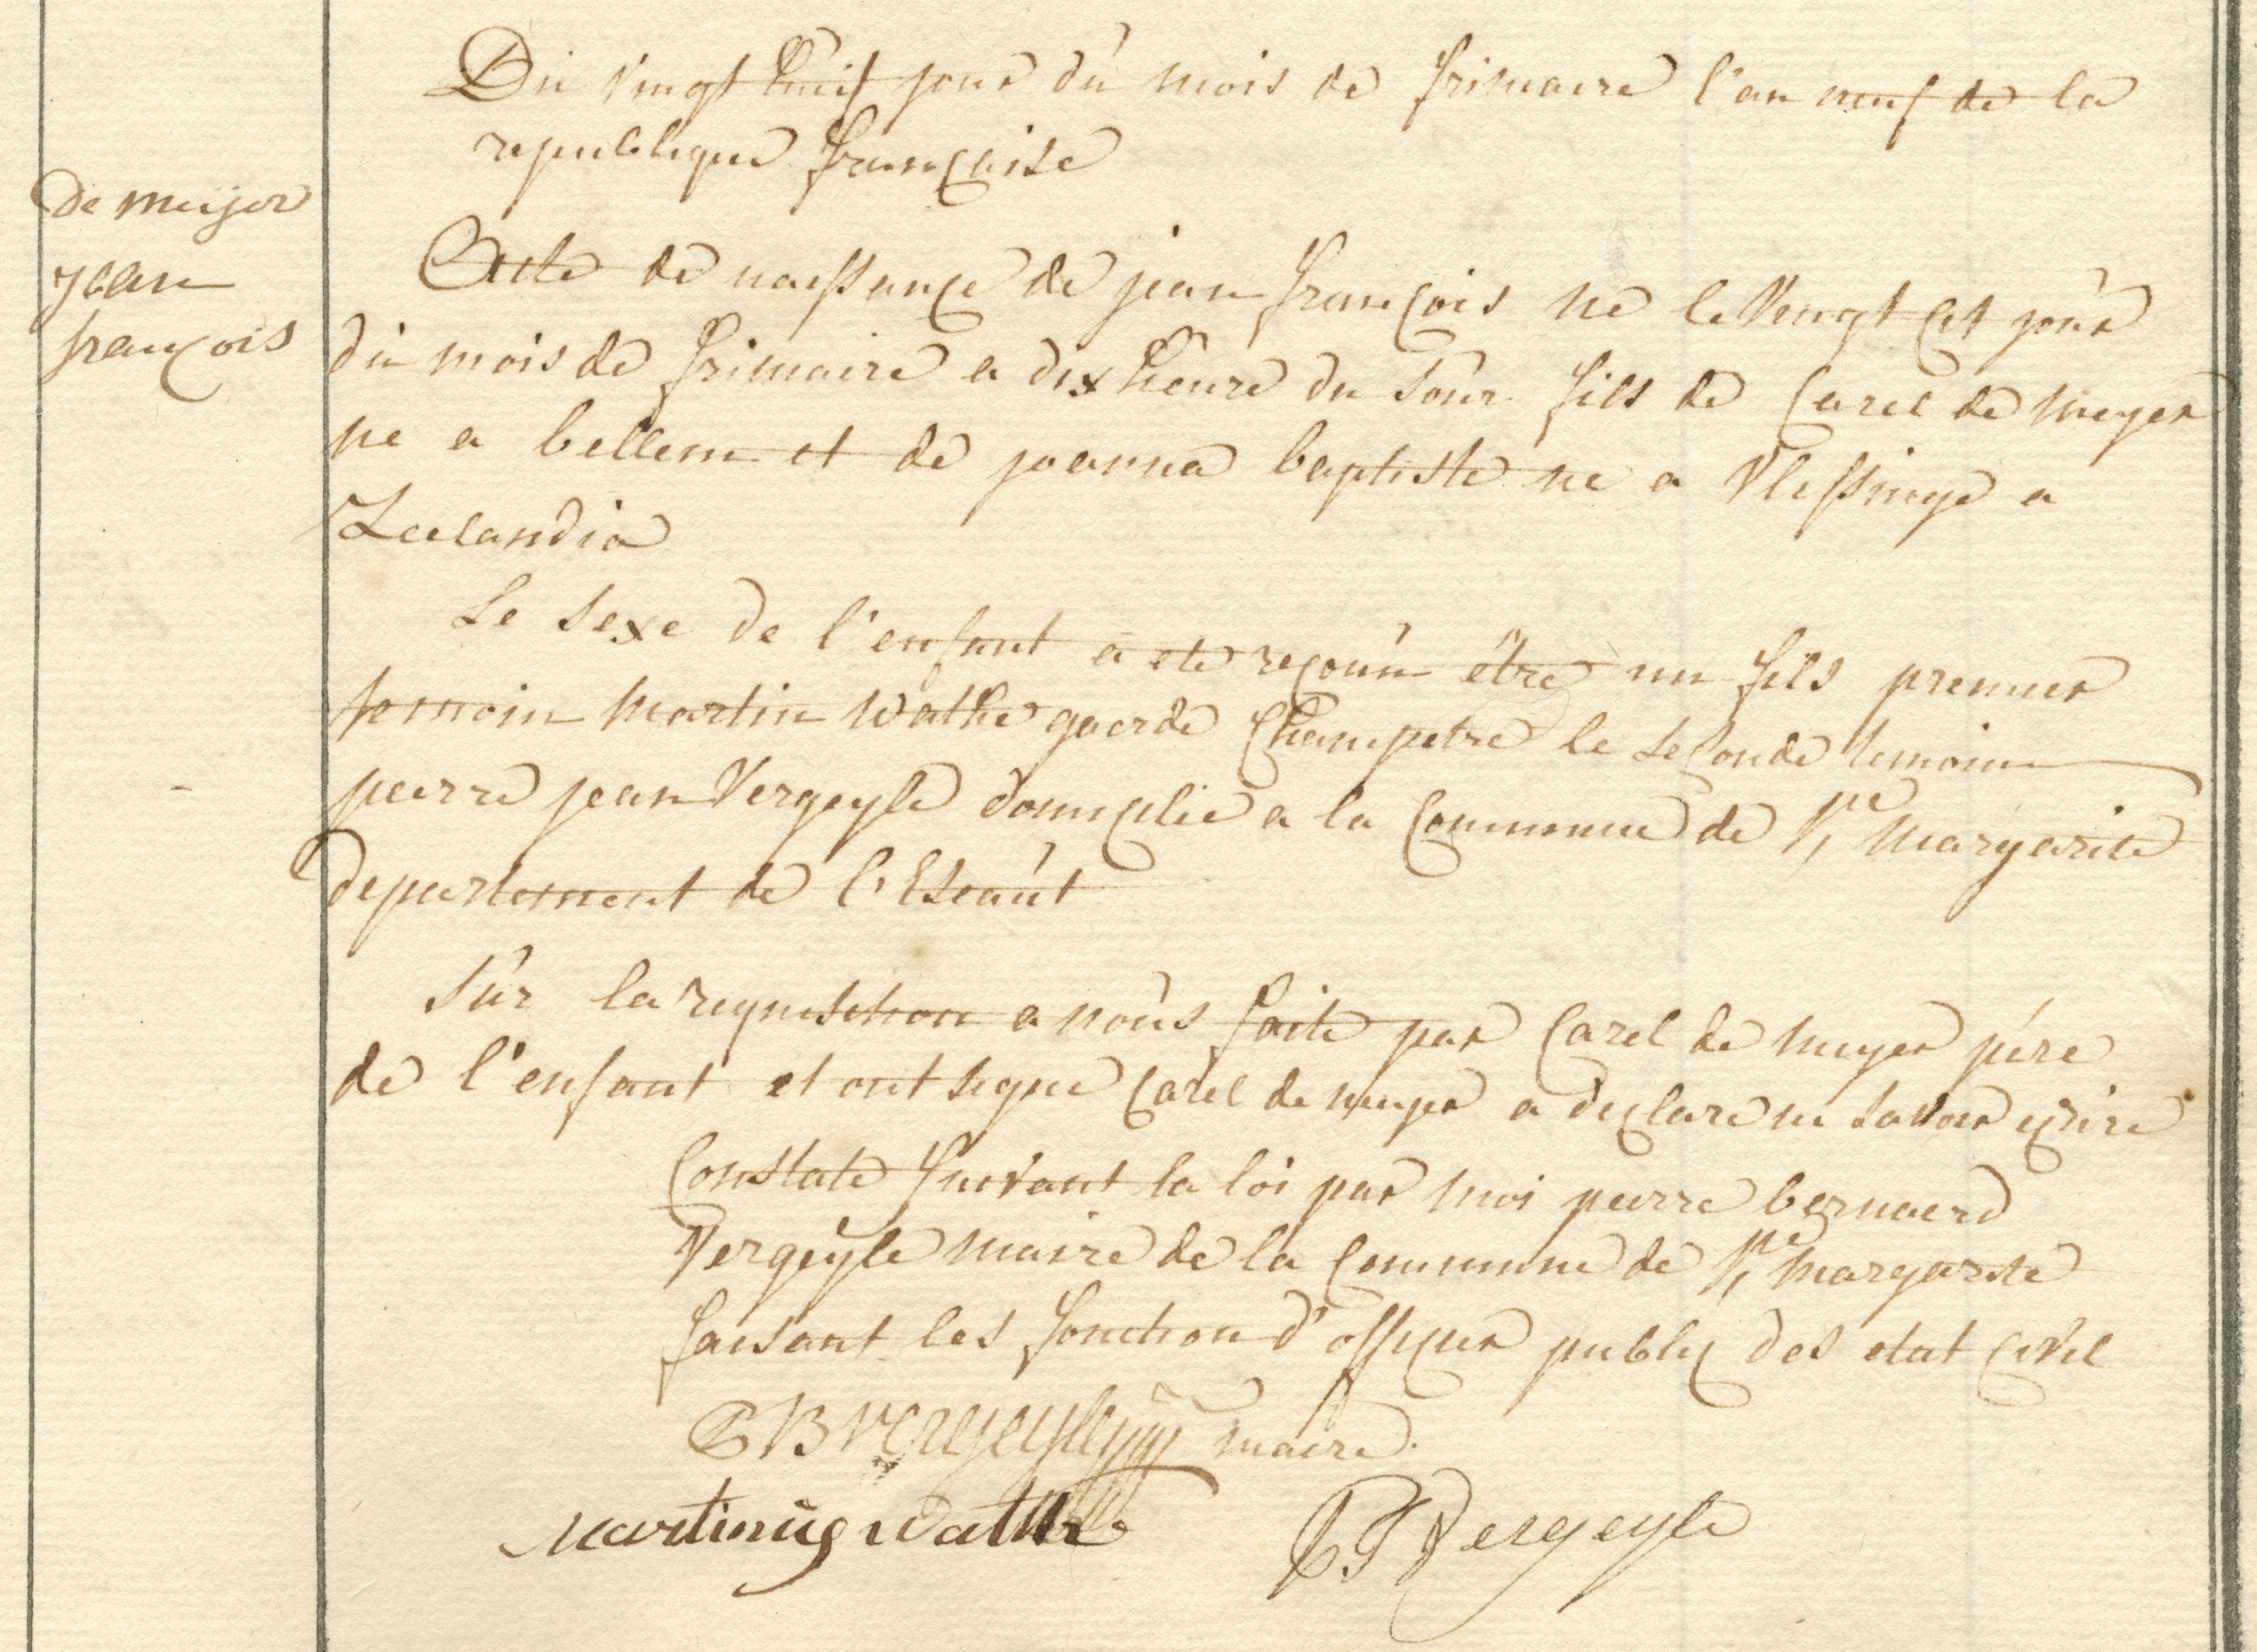 Du vingt huit jour du mois de frimaire l'an neuf de la
republique françoise
de meijer
jean
françois
Acte de naissançe de jean françois ne le vingt çet jour
du mois de frimaire a dix heure du soir fils de Carel de meyer
ne a bellem et de joanna baptiste ne a Vlissinge a
Zeelandia
Le sexe de l'enfant a ete reçoun être un fils premier
temoin martin wathe gaerde Champetre le seconde temoin
pierre jean Vergeyle domiçlie a la Commune de Ste margarite
departement de l'Escaut
Sur la requisition a nous faite par Carel de meyer pére
de l'enfant et ont signe Carel de meyer a deçlare ne savoir eçrire
Constate suivant la loi par moi pierre bernaerd
Vergeÿle maire de la Commune de Ste margarite
faisant les fonction d'offiçier publiç des etat çivil
PB Vergeyle maire.
Martinus Wathe PJ Vergeyle